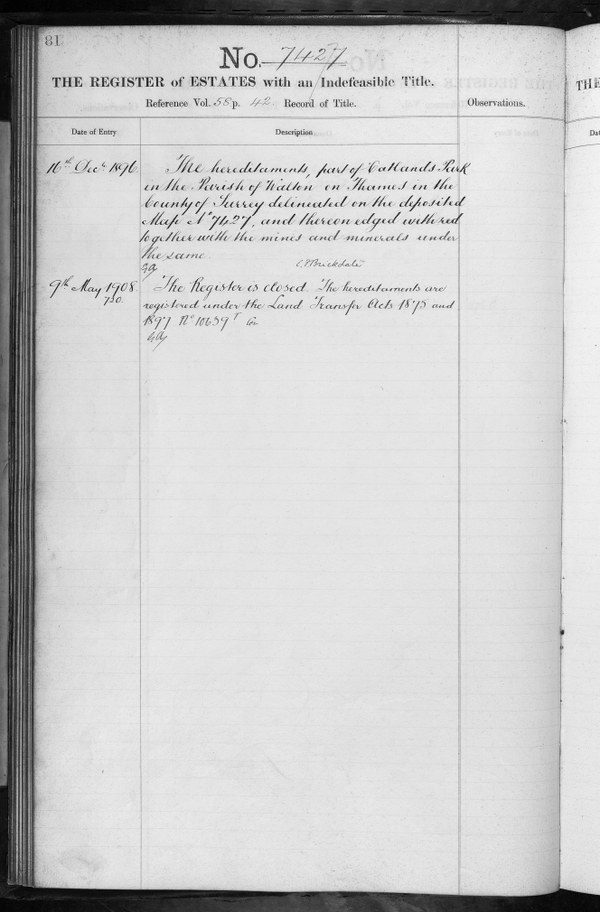 81
No. 7427
THE REGISTER of ESTATES with an Indefeasible Title.
Reference Vol. 55 p. 42 Record of Title.
Observations.
Date of Entry
Description
16th Decr 1896
The hereditaments, part of Oatlands Park
in the Parish of Walton on Thames in the
County of Surrey delineated on the deposited
Map No 7427, and thereon edged with red
together with the mines and minerals under
the same
C F Brickdale
9th May 1908
The Register is closed The hereditaments are
730
registered under the Land Transfer Acts 1875 and
1897 No 10639
THE
Da